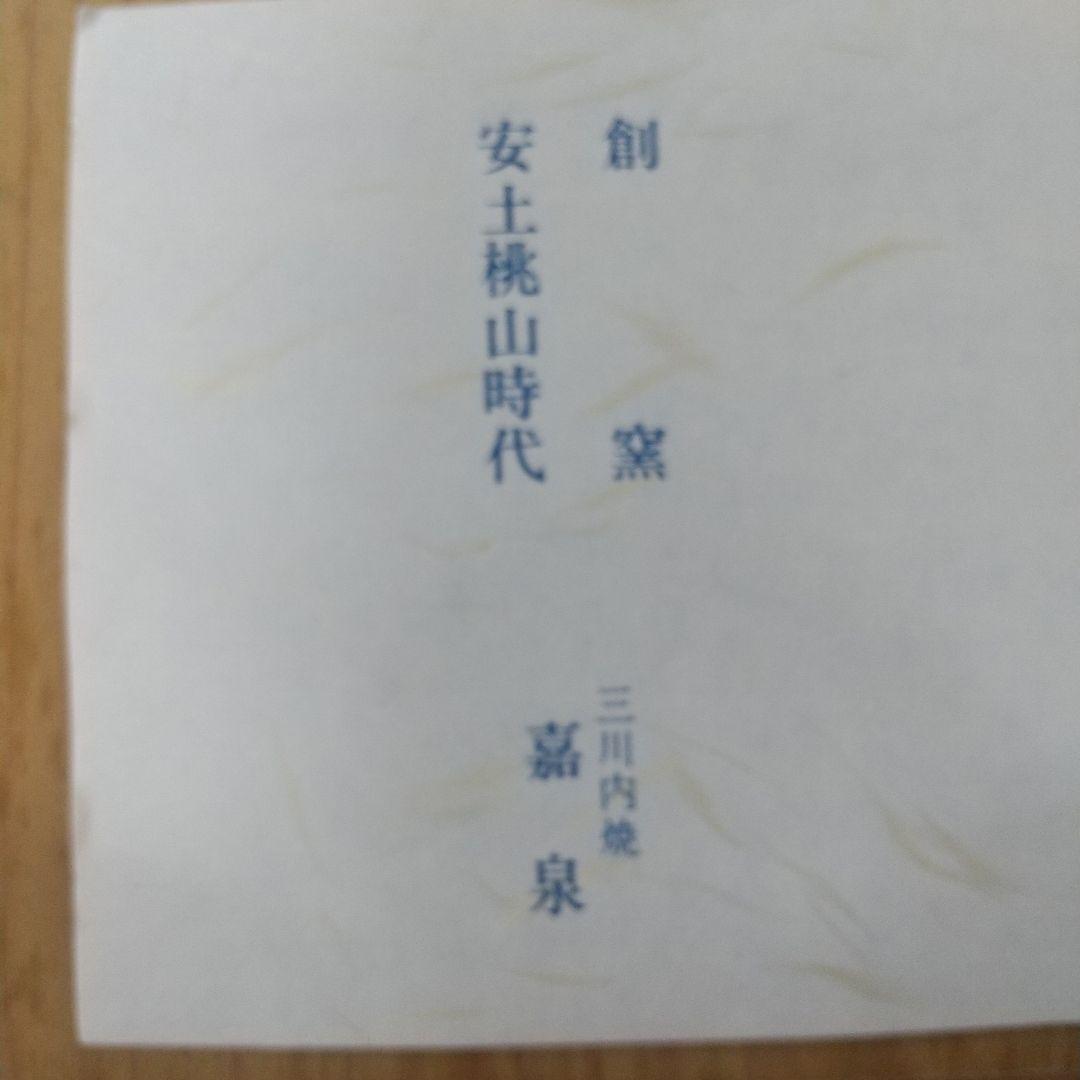 創窯
安土桃山時代
三川内焼
嘉泉